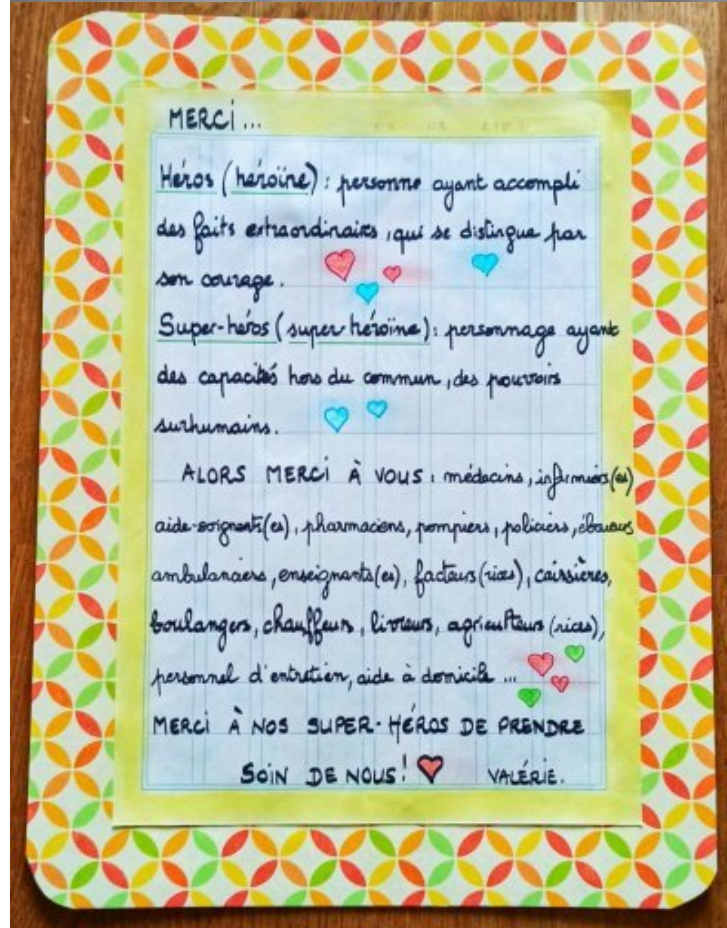 MERCI ...
Héros (héroïne) : personne ayant accompli
des faits extraordinaires, qui se distingue par
son courage.
Super-héros (super héroïne) : personnage ayant
des capacités hors du commun, des pouvoirs
surhumains.
ALORS MERCI À VOUS : médecins, infirmiers(es)
aide-soignants(es), pharmaciens, pompiers, policiers, éboueurs
ambulanciers, enseignants(es), facteurs(rices), caissières,
boulangers, chauffeurs, livreurs, agriculteurs (rices),
personnel d'entretien, aide à domicile ...
MERCI À NOS SUPER-HÉROS DE PRENDRE
SOIN DE NOUS! VALÉRIE.